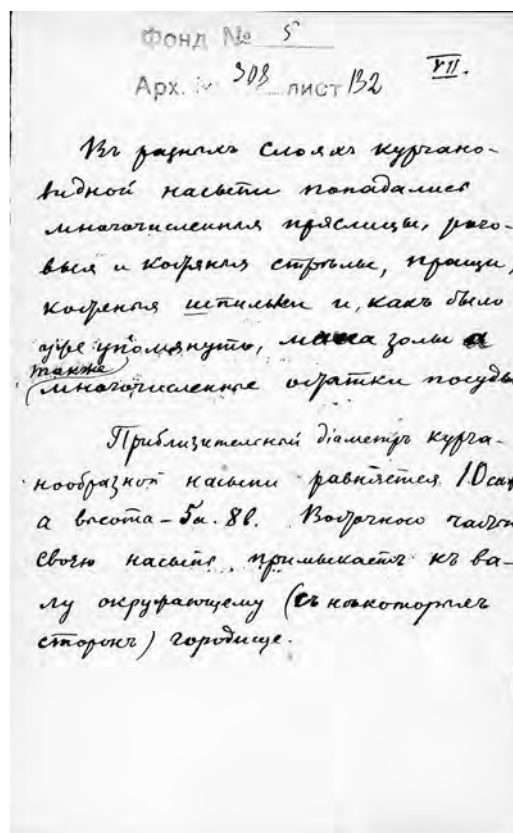 Фонд № 5
Арх. № 308 лист 132
VII.
Въ разныхъ слояхъ кургано-
видной насыпи попадались
многочисленныя пряслицы, рого-
выя и костяныя стрѣлы, пращи,
костяныя шпильки и, какъ было
уже упомянуто, масса золы а
также
многочисленные остатки посуды
Приблизительный діаметръ курга-
нообразной насыпи равняется 10 саж
а высота – 5а. 8в. Восточною частью
своею насыпь примыкаетъ къ ва-
лу окружающему (съ нѣкоторыхъ
сторонъ) городище.